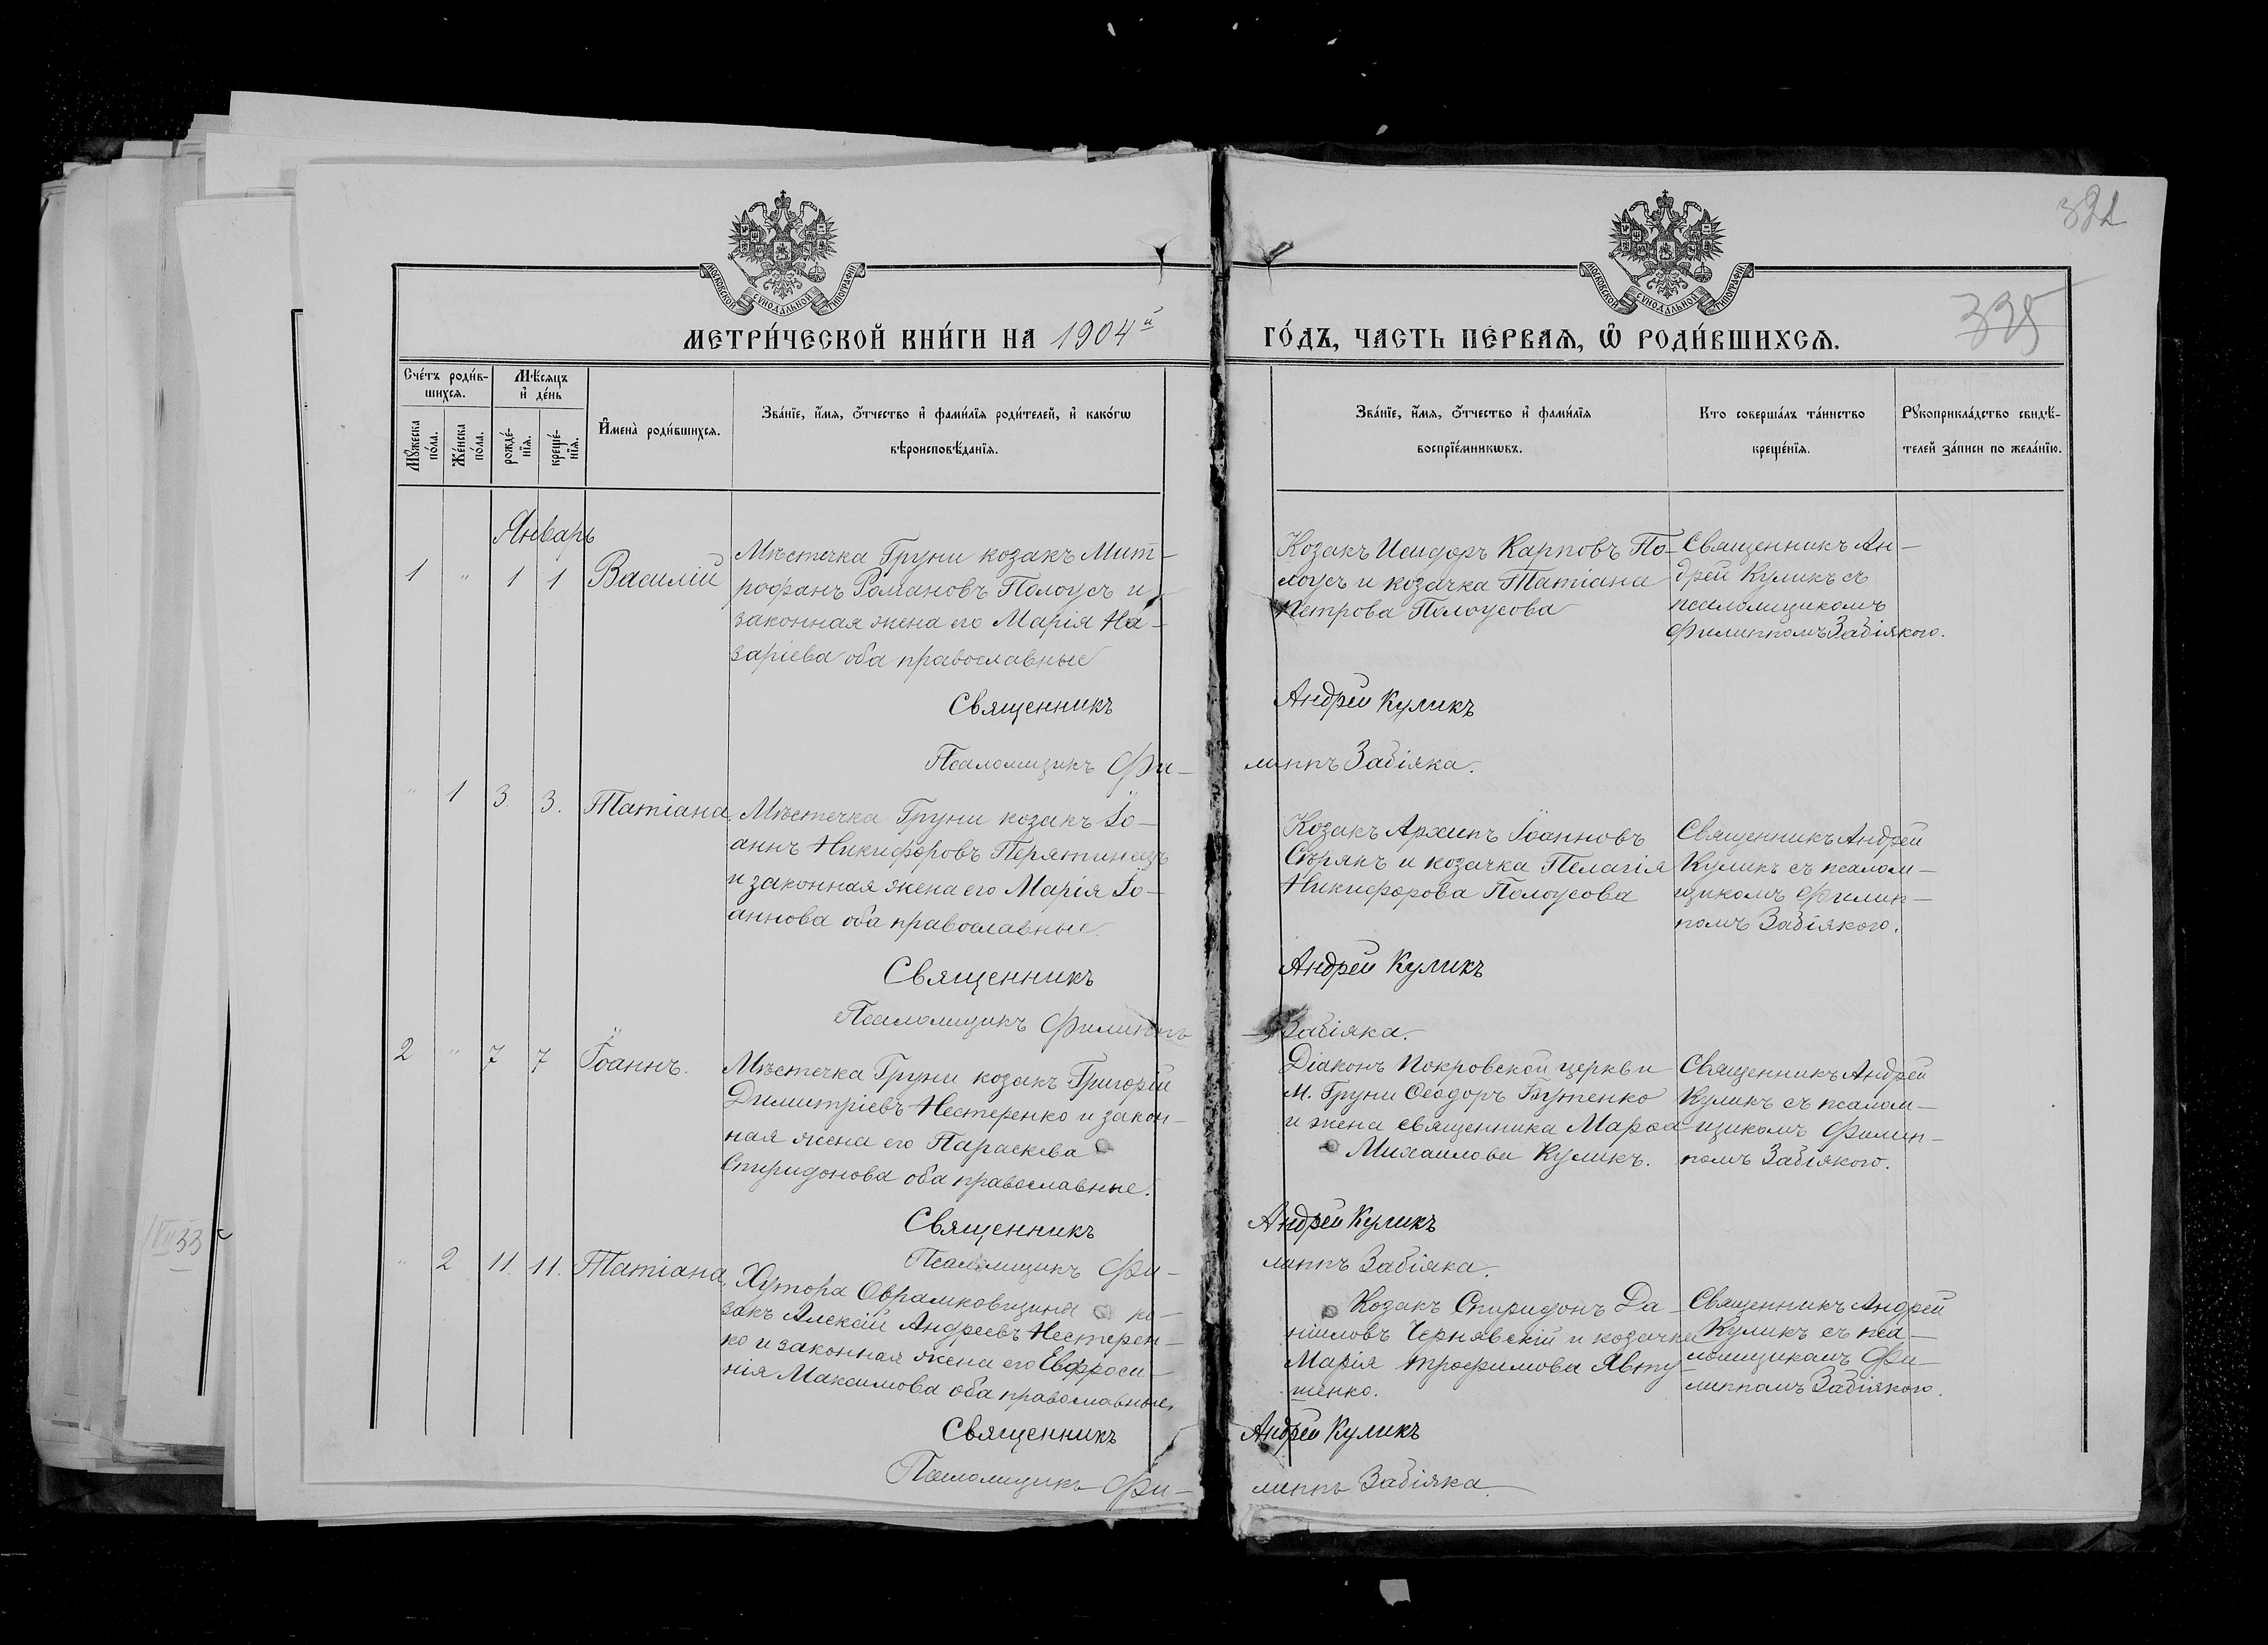 392
395
МОСКОВСКОЙ СУНОДАЛЬНОЙ ТИПОГРАФІИ
МОСКОВСКОЙ СУНОДАЛЬНОЙ ТИПОГРАФІИ
МЕТРИ́ЧЕСКОЙ КНИ́ГИ НА 1904й ГО́ДЪ, ЧАСТЬ ПЕ́РВАЯ, Ѡ РОДИ́ВШИХСЯ.
Сче́тъ роди́в-
шихся.
Му́жеска по́ла.
Же́нска по́ла.
Мѣ́сяцъ
и де́нь
рожде́-
нїя.
креще́-
нїя.
Имена̀ роди́вшихся.
Зва́нїе, и́мя, о́тчество и фами́лїя роди́телей, и како́гѡ
вѣроисповѣ́данїя.
Зва́нїе, и́мя, о́тчество и фами́лїя
воспрїе́мникѡвъ.
Кто соверша́лъ та́инство
креще́нїя.
Рукоприкла́дство свидѣ́-
телей за́писи по жела́нїю.
Январь
1 " 1 1 Василій
Мѣстечка Груни козакъ Мит-
рофанъ Романовъ Полоусъ и
законная жена его Марія На-
заріева оба православные
Козакъ Исидоръ Карповъ По-
лоусъ и козачка Татіана
Петрова Полоусова
Священникъ Ан-
дрей Куликъ съ
псаломщикомъ
Филиппомъ Забіякого.
Священникъ Андрей Куликъ
Псаломщикъ Фи- липпъ Забіяка.
" 1 3. 3. Татіана.
Мѣстечка Груни козакъ Іо-
аннъ Никифоровъ Перятинецъ
и законная жена его Марія Іо-
аннова оба православные.
Козакъ Архипъ Іоанновъ
Сѣрякъ и козачка Пелагія
Никифорова Полоусова
Священникъ Андрей
Куликъ съ псалом-
щикомъ Филип-
помъ Забіякого.
Священникъ Андрей Куликъ
Псаломщикъ Филиппъ Забіяка.
2 " 7 7 Іоаннъ.
Мѣстечка Груни козакъ Григорій
Димитріевъ Нестеренко и закон-
ная жена его Параскева
Спиридонова оба православные.
Діаконъ Покровской церкви
М. Груни Ѳеодоръ Бутенко
и жена священника Марѳа
Михаилова Куликъ.
Священникъ Андрей
Куликъ съ псалом-
щикомъ Филип-
помъ Забіякого.
Священникъ Андрей Куликъ
Псаломщикъ Фи- липпъ Забіяка.
" 2 11. 11. Татіана.
Хутора Оврамковщина ко-
закъ Алексій Андреевъ Нестерен-
ко и законная жена его Евфроси-
нія Максимова оба православные.
Козакъ Спиридонъ Да-
ніиловъ Чернявскій и козачка
Марія Трофимова Явту-
шенко.
Священникъ Андрей
Куликъ съ пса-
ломщикомъ Фи-
липпомъ Забіякого.
Священникъ Андрей Куликъ
Псаломщикъ Фи- липпъ Забіяка.